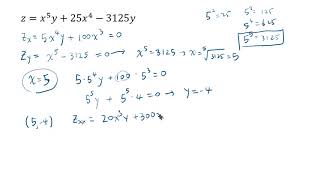 z = x⁵y + 25x⁴ − 3125y
5² = 25 5³ = 125
5⁴ = 625
5⁵ = 3125
Zₓ = 5x⁴y + 100x³ = 0
Zy = x⁵ − 3125 = 0 → x⁵ = 3125 → x = ⁵√3125 = 5
x = 5 5·5⁴y + 100·5³ = 0
5⁵y + 5⁵·4 = 0 → y = −4
(5,−4) Zₓₓ = 20x³y + 300x